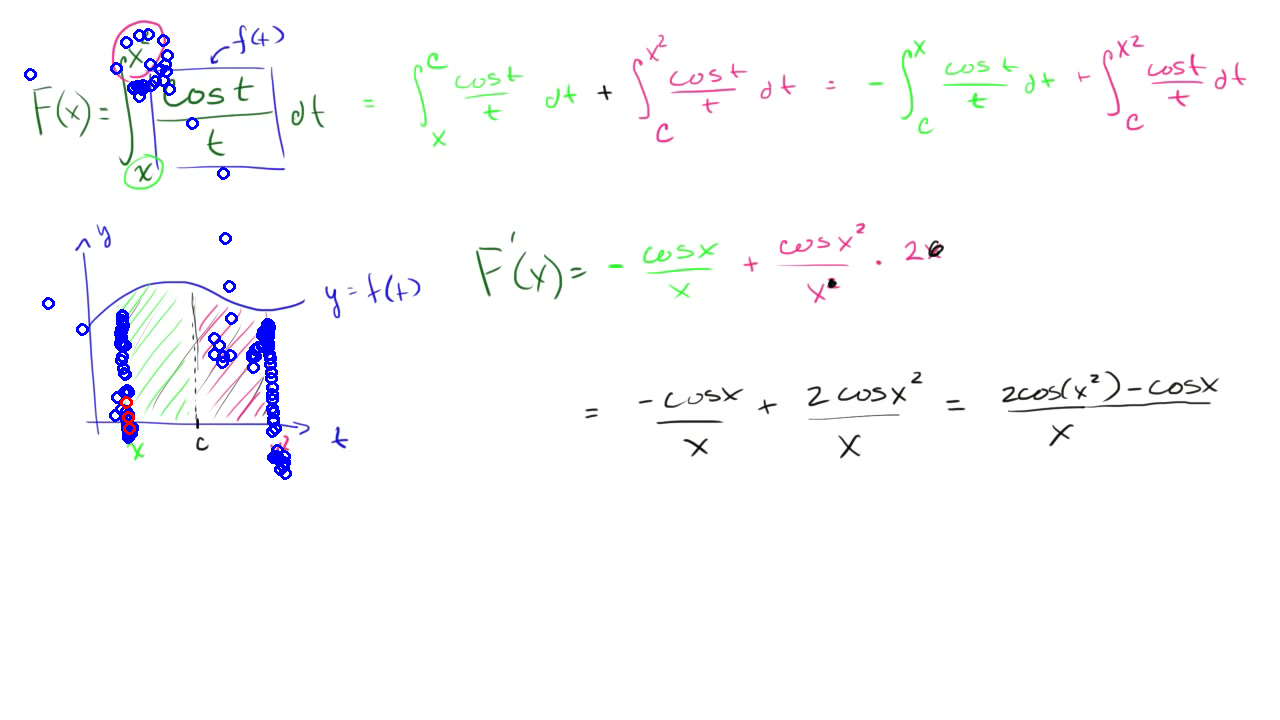 F(x) = ∫_x^{x²} cos t / t dt = ∫_x^c cos t / t dt + ∫_c^{x²} cos t / t dt = - ∫_c^x cos t / t dt + ∫_c^{x²} cos t / t dt
f(t)
F'(x) = - cos x / x + cos x² / x · 2
y
y = f(t)
x c t
= -cos x / x + 2 cos x² / x = 2cos(x²) - cos x / x